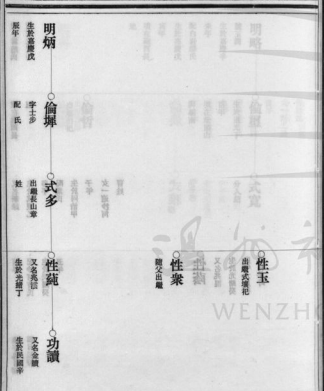 明炳
生於嘉慶戊
辰年
倫墀
字士步
配 氏
式多
出繼長山章
姓
性玉
出繼式壇祀
性衆
隨父出繼
性
又名兆
生於光緒丁
功讀
又名金讀
生於民國辛
WENZHO